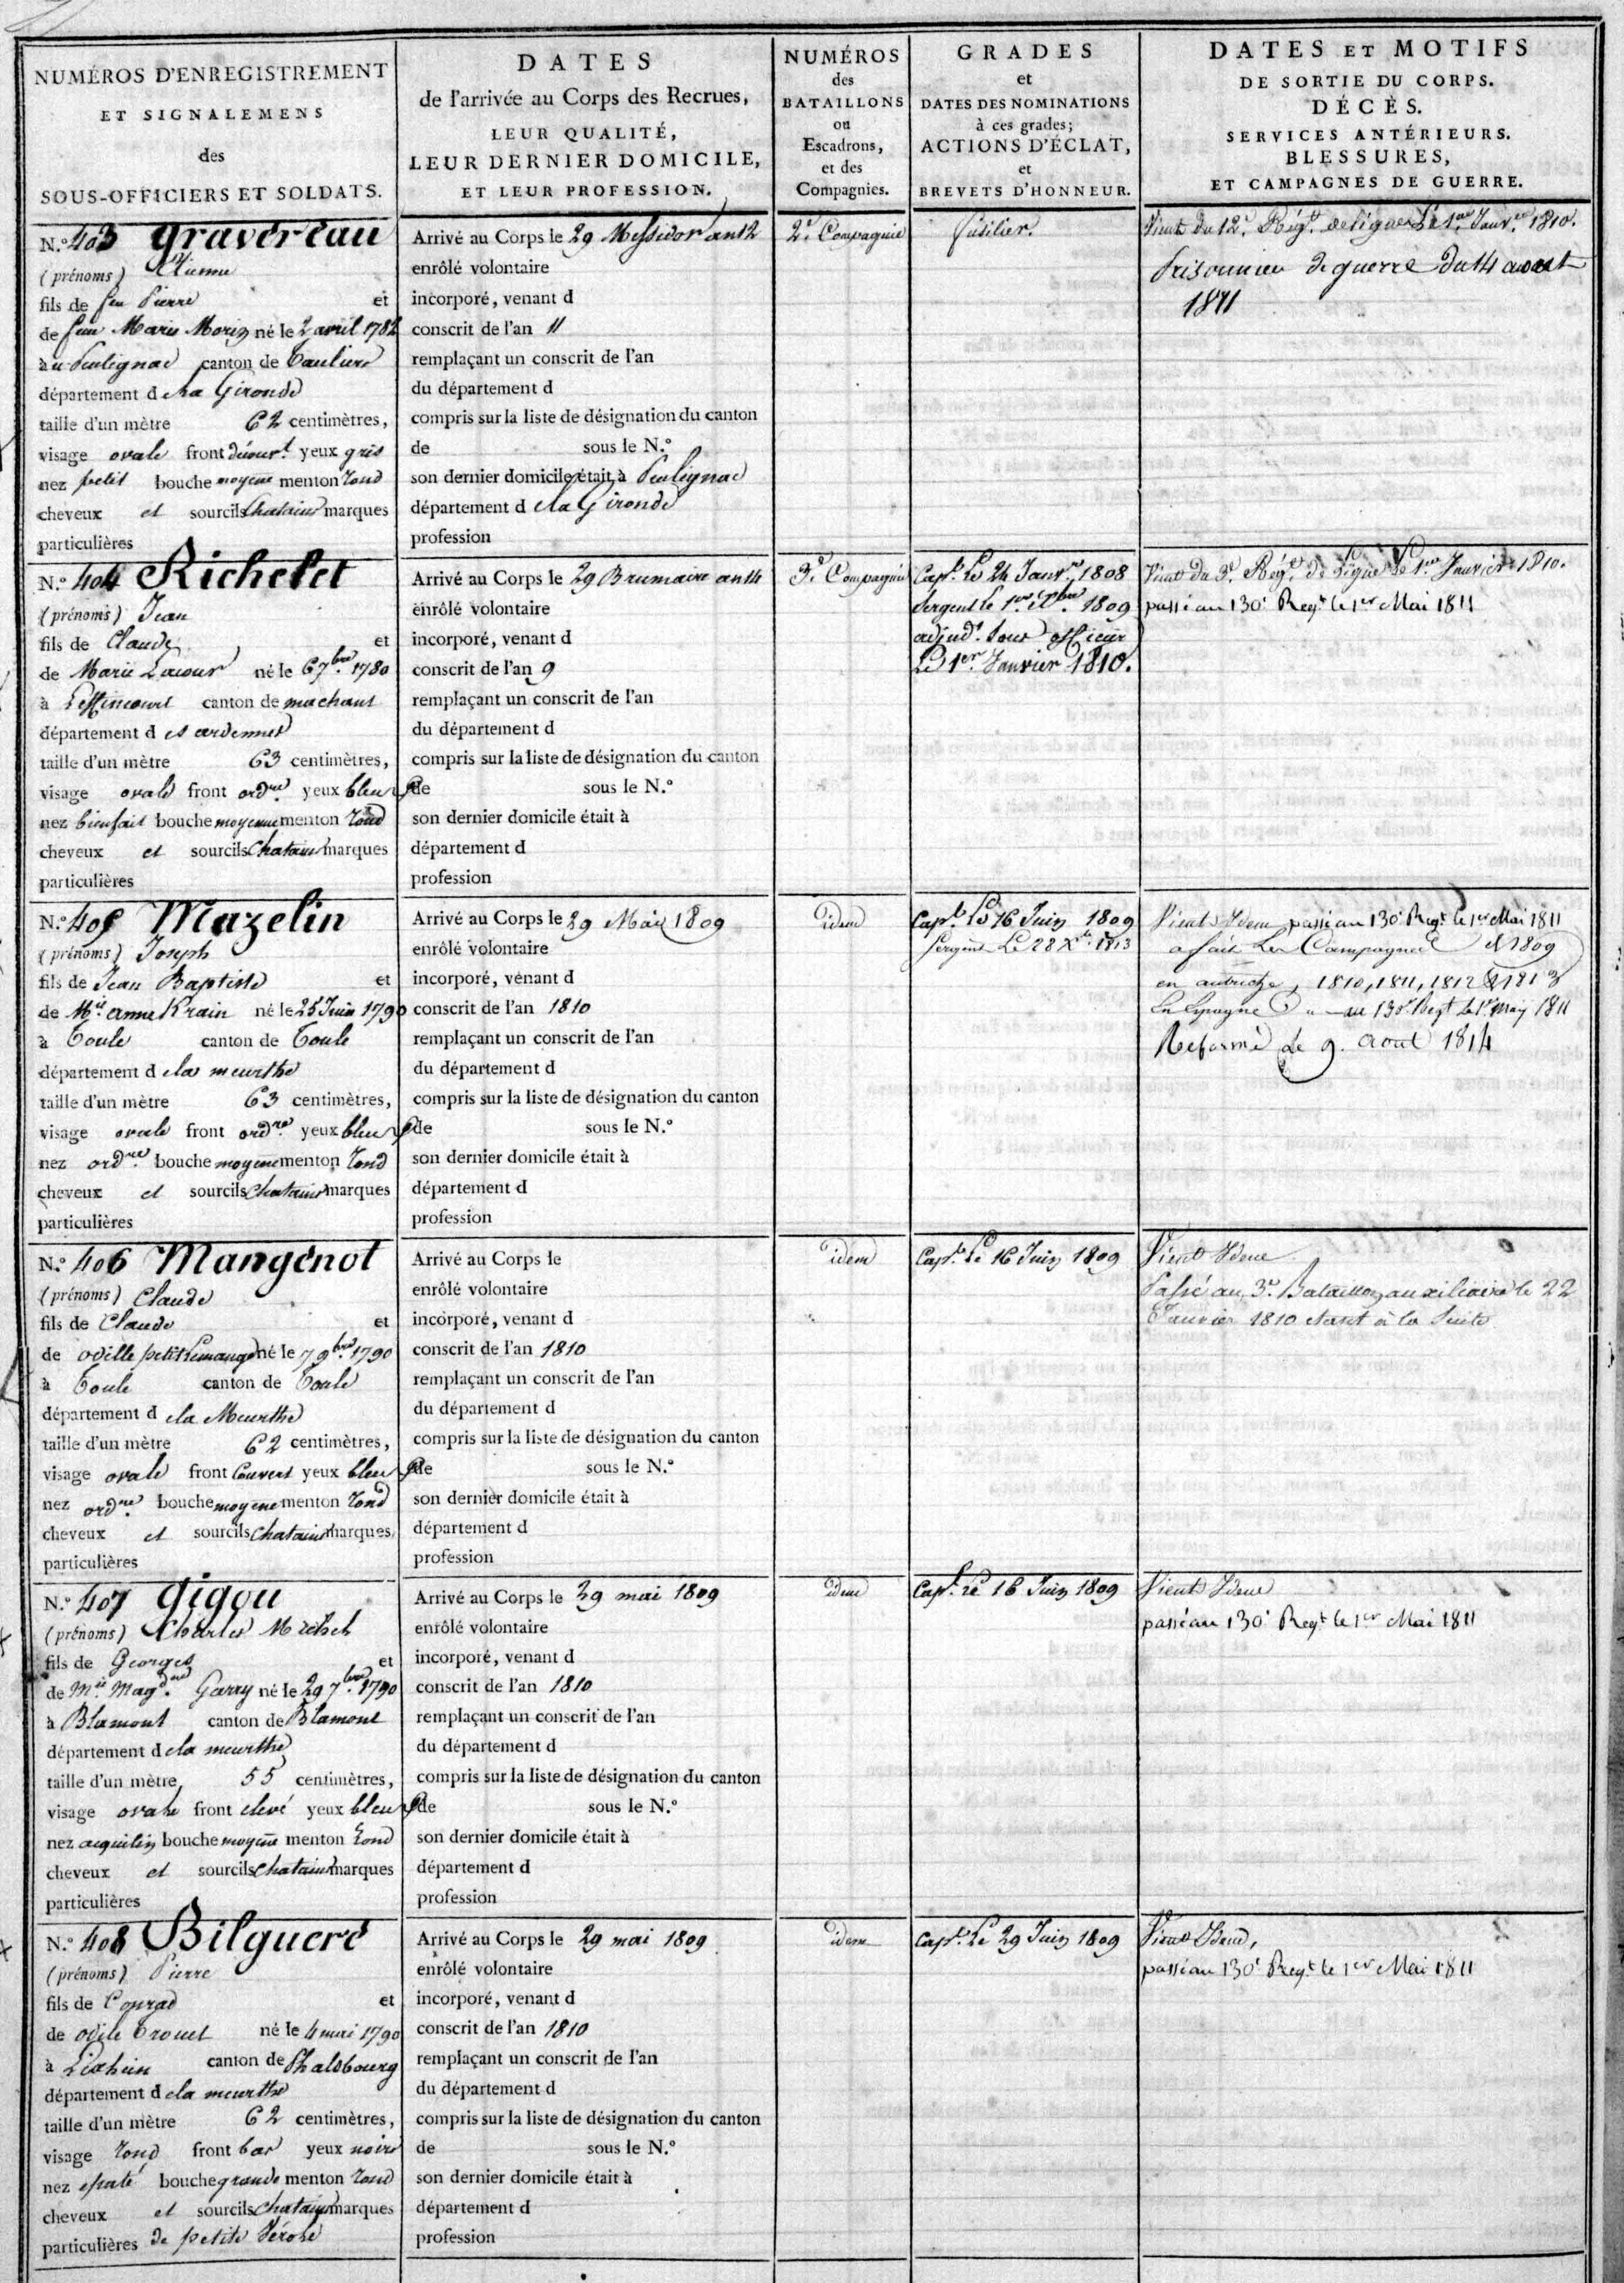 NUMÉROS D'ENREGISTREMENT
ET SIGNALEMENS
des
SOUS-OFFICIERS ET SOLDATS.
DATES
de l'arrivée au Corps des Recrues,
LEUR QUALITÉ,
LEUR DERNIER DOMICILE,
ET LEUR PROFESSION.
NUMÉROS
des
BATAILLONS
ou
Escadrons,
et des
Compagnies.
GRADES
et
DATES DES NOMINATIONS
à ces grades;
ACTIONS D'ÉCLAT,
et
BREVETS D'HONNEUR.
DATES ET MOTIFS
DE SORTIE DU CORPS.
DÉCÈS.
SERVICES ANTÉRIEURS.
BLESSURES,
ET CAMPAGNES DE GUERRE.
N.º 403 Gravereau
(prénoms) Etienne
fils de feu Pierre et
de feue Marie Morin né le 2 avril 1782
à canton de
département de la Gironde
taille d'un mètre 62 centimètres,
visage ovale front découvt. yeux gris
nez petit bouche moyene menton rond
cheveux et sourcils chatains marques
particulières
Arrivé au Corps le 29 Messidor an 12
enrôlé volontaire
incorporé, venant d
conscrit de l'an 11
remplaçant un conscrit de l'an
du département d
compris sur la liste de désignation du canton
de sous le N.º
son dernier domicile était à
département de la Gironde
profession
2e. Compagnie
fusilier.
Vient du 12e. Régt. de ligne le 1er. Janver. 1810.
Prisonnier de guerre du 14 aout
1811
N.º 404 Richelet
(prénoms) Jean
fils de Claude et
de Marie Lacour né le 6 7bre. 1780
à canton de machaut
département des ardennes
taille d'un mètre 63 centimètres,
visage ovale front ordre. yeux bleus
nez bienfait bouche moyenne menton rond
cheveux et sourcils chatains marques
particulières
Arrivé au Corps le 29 Brumaire an 14
enrôlé volontaire
incorporé, venant d
conscrit de l'an 9
remplaçant un conscrit de l'an
du département d
compris sur la liste de désignation du canton
de sous le N.º
son dernier domicile était à
département d
profession
3e. Compagnie
Capl. le 24 Janvr. 1808
Sergent le 1er. 1809
adjudt. Sous officier
le 1er. Janvier 1810.
Vient du 3e. Régt. de ligne le 1er. Janvier 1810.
passé au 130e Regt. le 1er Mai 1811
N.º 405 Mazelin
(prénoms) Joseph
fils de Jean Baptiste et
de Mie. anne Krain né le 25 Juin 1790
à Toule canton de Toule
département de la meurthe
taille d'un mètre 63 centimètres,
visage ovale front ordre. yeux bleus
nez ordre. bouche moyene menton rond
cheveux et sourcils chatains marques
particulières
Arrivé au Corps le 29 Mai 1809
enrôlé volontaire
incorporé, venant d
conscrit de l'an 1810
remplaçant un conscrit de l'an
du département d
compris sur la liste de désignation du canton
de sous le N.º
son dernier domicile était à
département d
profession
idem
Capl. le 16 Juin 1809
Sergent le 28 Xbre 1813
Vient Idem passé au 130e Regt. le 1er Mai 1811
a fait les Campagnes de 1809
en autriche, 1810, 1811, 1812 & 1813
en Espagne au 130e. Regt. le 1er. May 1811
Reformé le 9. aout 1814
N.º 406 Mangenot
(prénoms) Claude
fils de Claude et
de né le 7 9bre. 1790
à Toule canton de Toule
département de la Meurthe
taille d'un mètre 62 centimètres,
visage ovale front Couvert yeux bleus
nez ordre. bouche moyene menton rond
cheveux et sourcils chatains marques
particulières
Arrivé au Corps le
enrôlé volontaire
incorporé, venant d
conscrit de l'an 1810
remplaçant un conscrit de l'an
du département d
compris sur la liste de désignation du canton
de sous le N.º
son dernier domicile était à
département d
profession
idem
Capl. le 16 Juin 1809
Vient Idem
Passé au 3e. Bataillon auxiliaire le 22
Janvier 1810 etant à la Suite
N.º 407 Gigou
(prénoms) Charles Michel
fils de Georges et
de Mie. Magdne. Garry né le 29 7bre. 1790
à Blamont canton de Blamont
département de la meurthe
taille d'un mètre 55 centimètres,
visage ovale front elevé yeux bleus
nez aquilin bouche moyene menton rond
cheveux et sourcils chatains marques
particulières
Arrivé au Corps le 29 mai 1809
enrôlé volontaire
incorporé, venant d
conscrit de l'an 1810
remplaçant un conscrit de l'an
du département d
compris sur la liste de désignation du canton
de sous le N.º
son dernier domicile était à
département d
profession
idem
Capl. le 16 Juin 1809
Vient Idem
passé au 130e Regt. le 1er Mai 1811
N.º 408 Bilguere
(prénoms) Pierre
fils de Conrad et
de odile Trouet né le 4 mai 1790
à Lixhein canton de Phalsbourg
département de la meurthe
taille d'un mètre 62 centimètres,
visage rond front bas yeux noirs
nez epaté bouche grande menton rond
cheveux et sourcils chatains marques
particulières de petite Vérole
Arrivé au Corps le 29 mai 1809
enrôlé volontaire
incorporé, venant d
conscrit de l'an 1810
remplaçant un conscrit de l'an
du département d
compris sur la liste de désignation du canton
de sous le N.º
son dernier domicile était à
département d
profession
idem
Capl. le 29 Juin 1809
Vient Idem,
passé au 130e Regt. le 1er Mai 1811